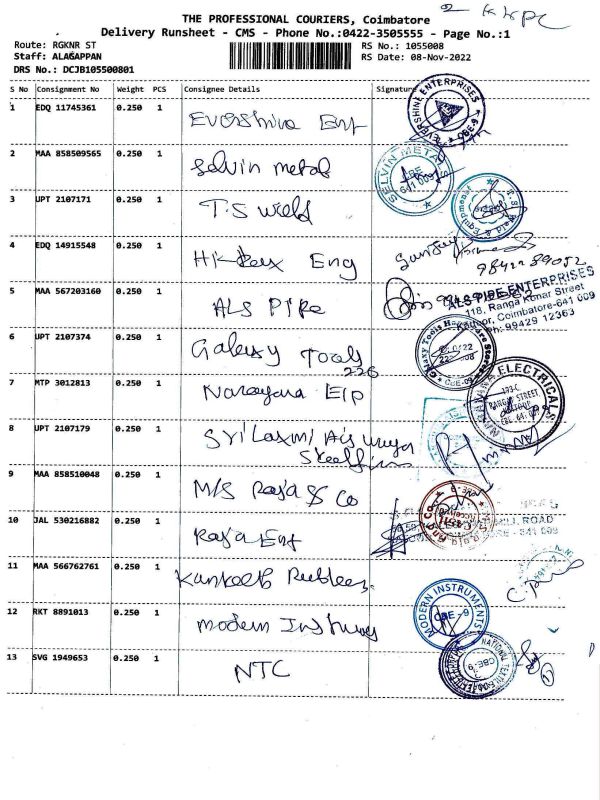 THE PROFESSIONAL COURIERS, Coimbatore
Delivery Runsheet - CMS - Phone No.:0422-3505555 - Page No.:1
Route: RGKNR ST
RS No.: 1055008
Staff: ALAGAPPAN
RS Date: 08-Nov-2022
DRS No.: DCJB105500801
S No Consignment No Weight PCS Consignee Details Signature
1 EDQ 11745361 0.250 1 Evershine Ent
EVERSHINE ENTERPRISES CBE-9
2 MAA 858509565 0.250 1 Selvin metal
SELVIN METALS CBE 641 009
3 UPT 2107171 0.250 1 T.S weld
T.S. Weld & Equipments
4 EDQ 14915548 0.250 1 Eng
9842239052
5 MAA 567203160 0.250 1 ALS PIPE
ALS PIPE ENTERPRISES
118, Ranga Konar Street
Kattoor, Coimbatore-641 009
Ph: 99429 12363
6 UPT 2107374 0.250 1 Galaxy Tools
CBE-09
226
7 MTP 3012813 0.250 1 Narayana Elp
NARAYANA ELECTRICALS
8 UPT 2107179 0.250 1 Sri Laxmi
9 MAA 858510048 0.250 1 M/S Raja & Co
10 JAL 530216882 0.250 1 Raja Ent
MILL ROAD
641 009
11 MAA 566762761 0.250 1
12 RKT 8891013 0.250 1 modern
MODERN INSTRUMENTS CBE-9
13 SVG 1949653 0.250 1 NTC
NATIONAL CBE-9